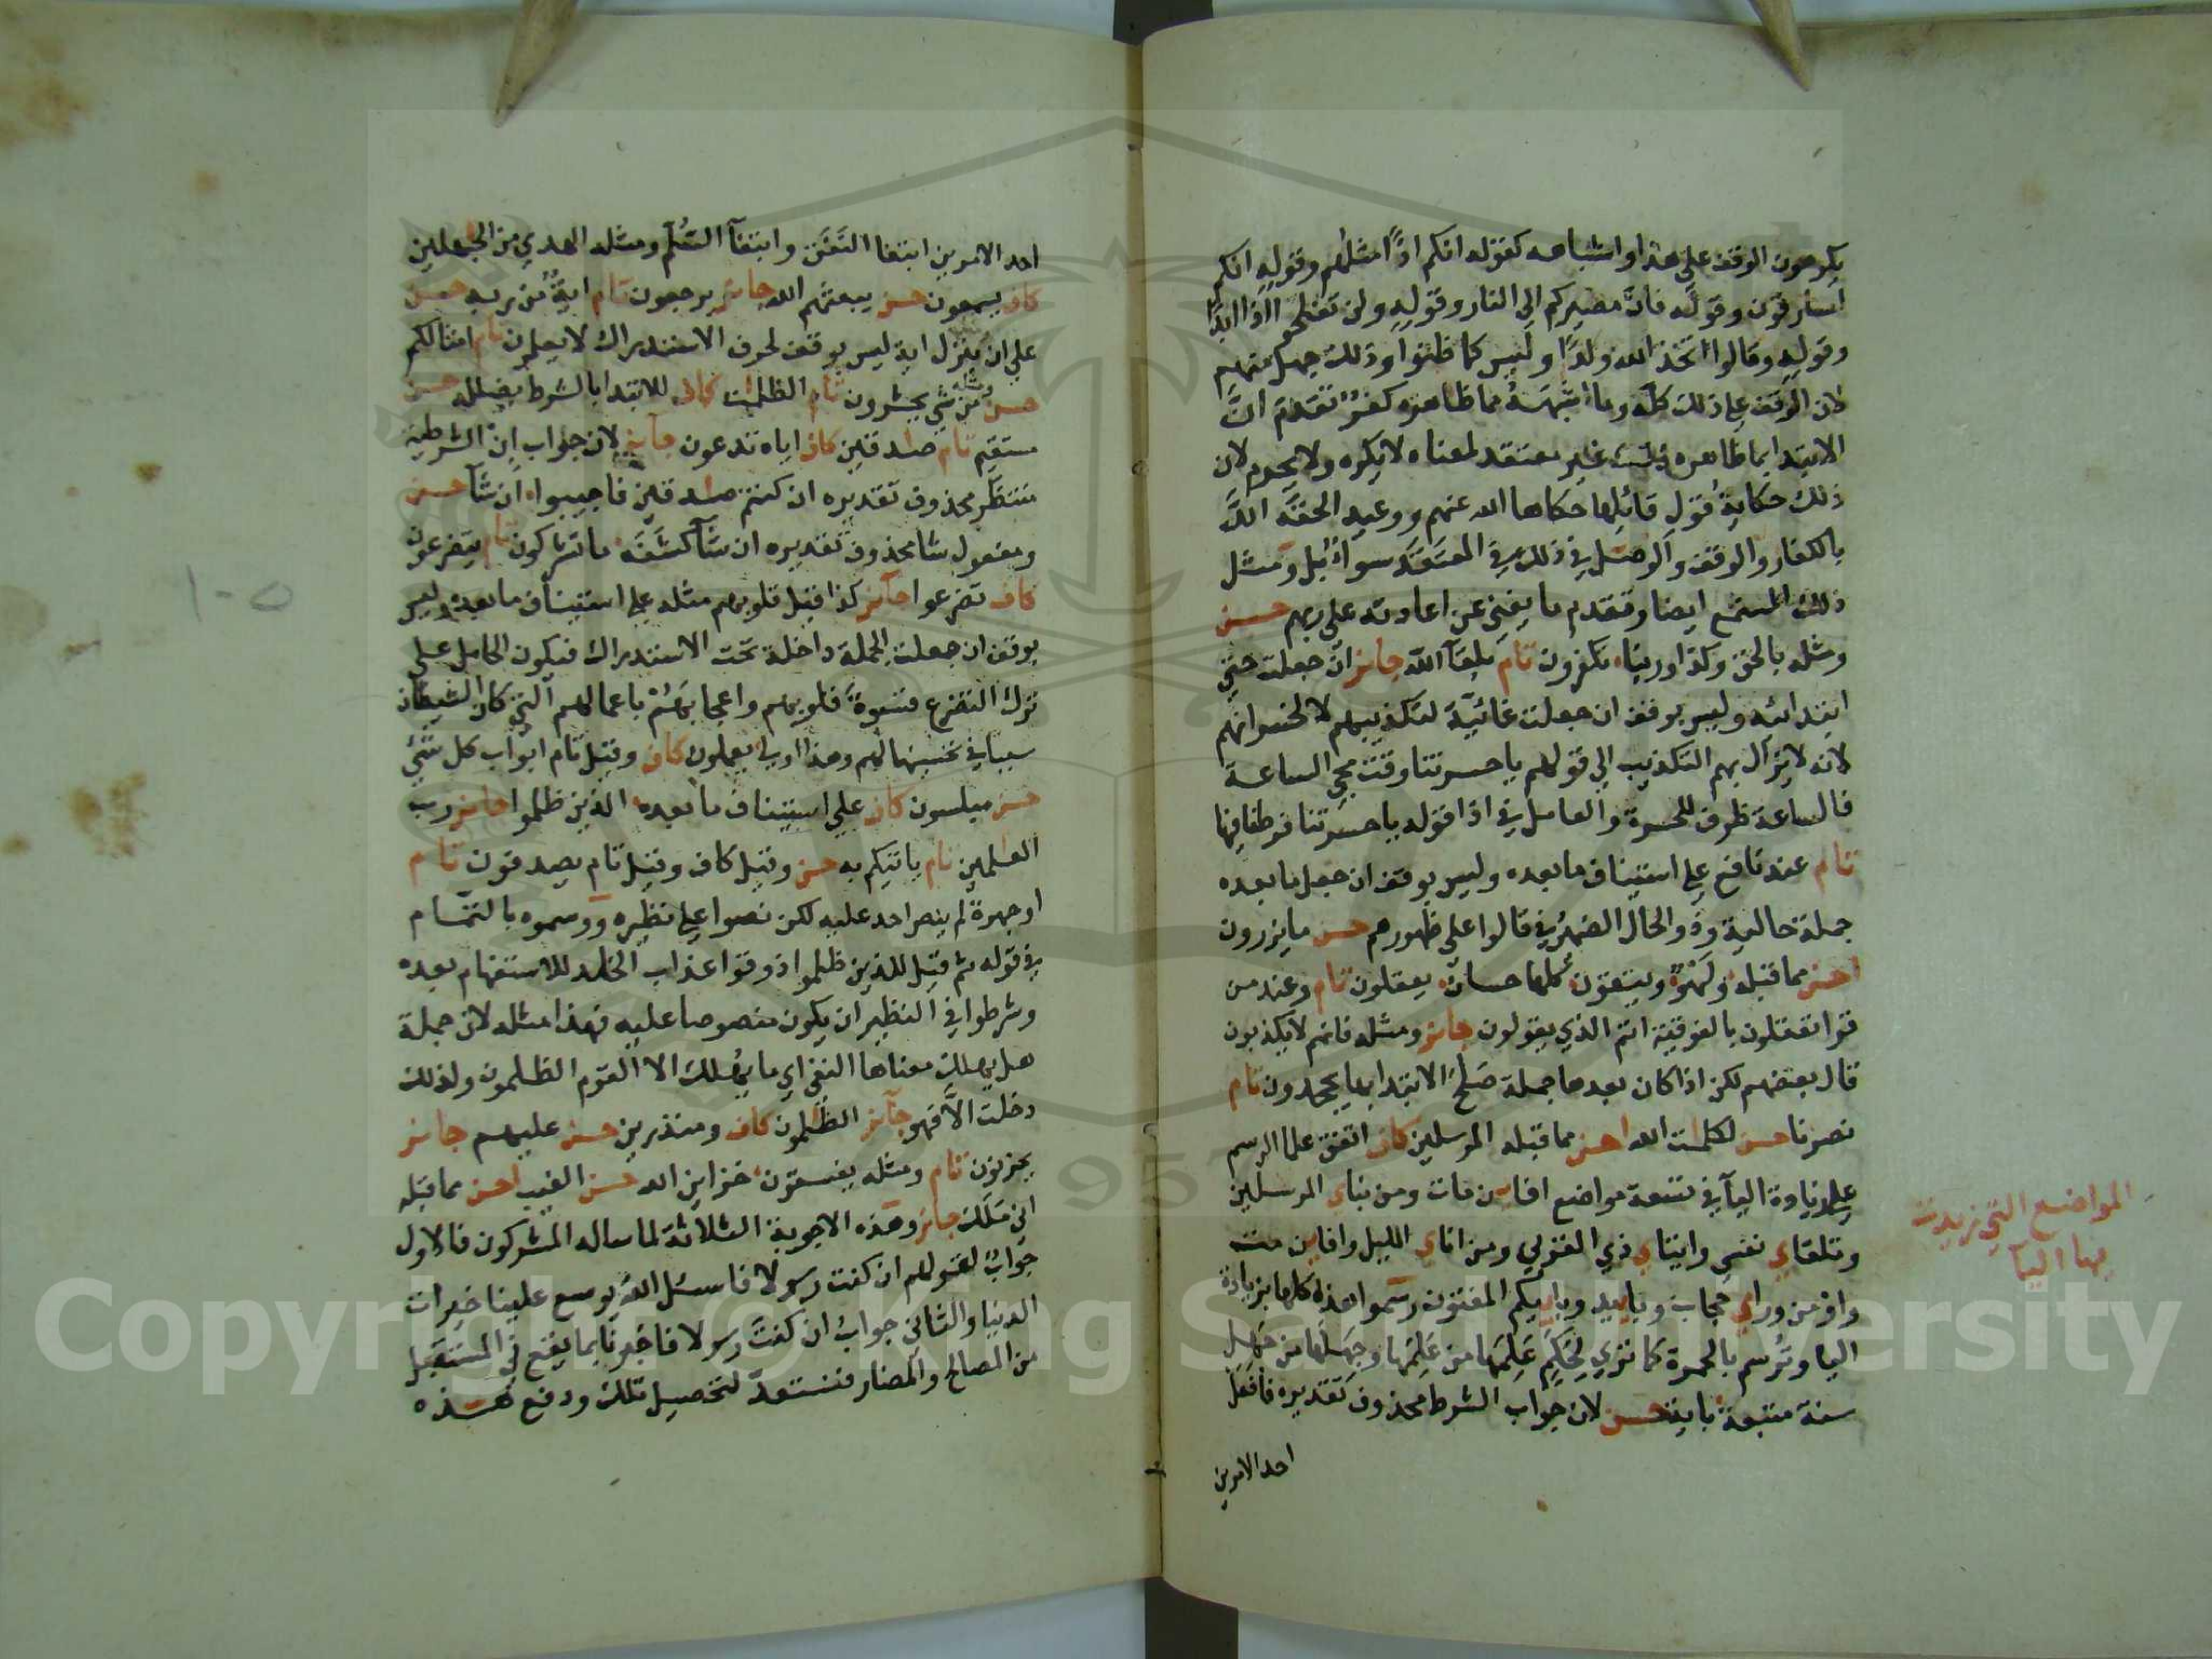 يكرهون الوقف على هذا واشباهه كقوله انكم اذًا مثلهم وقوله انكم
لسارقون وقوله فان مصيركم الى النار وقوله ولن تفلحوا اذا ابدًا
وقوله وقالوا اتخذ الله ولدًا وليس كما ظنوا وذلك جهل منهم
لان الوقف على ذلك كله وما اشبهه مما ظاهره كفر تقدم ان
الابتدا بما ظاهره ذلك غير معتقد لمعناه لا يكره ولا يحرم لان
ذلك حكاية قول قائلها حكاها الله عنهم ووعيد الحقه الله
بالكفار والوقف والوصل في ذلك في المعتقد سواء بل ومثل
ذلك المستمع ايضا وتقدم ما يغني عن اعادته على ربهم حسن
ومثله بالحق وكذا وربنا تكفرون تام بلقآ الله جائز ان جعلت حتى
ابتدائه وليس بوقف ان جعلت غائيّة لتكذيبهم لا لخسرانهم
لانه لا يزال بهم التكذيب الى قولهم ياحسرتنا وقت مجي الساعة
فالساعة ظرف للحسرة والعامل في اذا قوله ياحسرتنا فرطنا فيها
تام عند نافع على استيناف ما بعده وليس بوقف ان جعل ما بعده
جملة حالية وذو الحال الضمير في قالوا على ظهورهم حسن ما يزرون
احسن مما قبله ولهوٌ ويتقون كلها حسان يعقلون تام وعند من
قرا تعقلون بالفوقية اتم الذي يقولون جائز ومثله فانهم لا يكذبون
قال بعضهم لكن اذا كان بعدها جملة صلح الابتدا بها يجحدون تام
نصرنا حسن لكلمت الله احسن مما قبله المرسلين كاف اتفق علما الرسم
على زيادة اليآ في تسعة مواضع افاين مات ومن نباي المرسلين
وتلقاي نفسي وايتاي ذي القربى ومن اناي الليل وافاين مت
واو من وراي حجاب وباييد وباييكم المفتون رسموا هذه كلها بزيادة
اليا وترسم بالحمرة كما ترى لحكم علمها من علمها وجهلها من جهل
سنة متبعة باية حسن لان جواب الشرط محذوف تقديره فافعل
احد الامرين
المواضع التي زيدت
بها اليآ
احد الامرين ابتغا النفق وابتغآ السلم ومثله الهدي من الجهلين
كاف يسمعون حسن يبعثهم الله جائز يرجعون تام اية من ربه حسن
على ان ينزل اية ليس بوقف لحرف الاستدراك لا يعلمون تام امثالكم
حسن ومثله من شي يحشرون تام الظلمت كاف للابتدا بالشرط يضلله حسن
مستقيم تام صدقين كاف اياه تدعون جائز لان جواب ان الشرطية
منتظر محذوف تقديره ان كنتم صدقين فاجيبوا ان شآ حسن
ومفعول شا محذوف تقديره ان شآ كشفه ما تشركون تام يتضرعون
كاف تضرعوا جائز كذا قيل قلوبهم مثله على استيناف ما بعده وليس
بوقف ان جعلت الجملة داخلة تحت الاستدراك فيكون الحامل على
ترك التضرع قسوة قلوبهم واعجابهم باعمالهم التي كان الشيطان
سببا في تحسينها لهم وهذا اولى يعملون كاف وقيل تام ابواب كل شي
حسن مبلسون كاف على استيناف ما بعده الذين ظلموا جائز رب
العلمين تام ياتيكم به حسن وقيل كاف وقيل تام يصدفون تام
او جهرة لم ينص احد عليه لكن نصوا على نظيره ووسموه بالتمام
في قوله ثم قيل للذين ظلموا ذوقوا عذاب الخلد للاستفهام بعده
وشرطوا في النظير ان يكون منصوصا عليه فهذا مثله لان جملة
هل يهلك معناها النفي اي ما يهلك الا القوم الظلمون ولذلك
دخلت الا فهو جائز الظلمون كاف ومنذرين حسن عليهم جائز
يحزنون تام ومثله يفسقون خزاين الله حسن الغيب احسن مما قبله
اني ملك جائز وهذه الاجوبة الثلاثة لما ساله المشركون فالاول
جواب لقولهم ان كنت رسولا فاسئل الله يوسع علينا خيرات
الدنيا والثاني جواب ان كنت رسولا فاخبرنا بما يقع في المستقبل
من المصالح والمضار فنستعد لتحصيل تلك ودفع هذه
Copyright © King Saud University